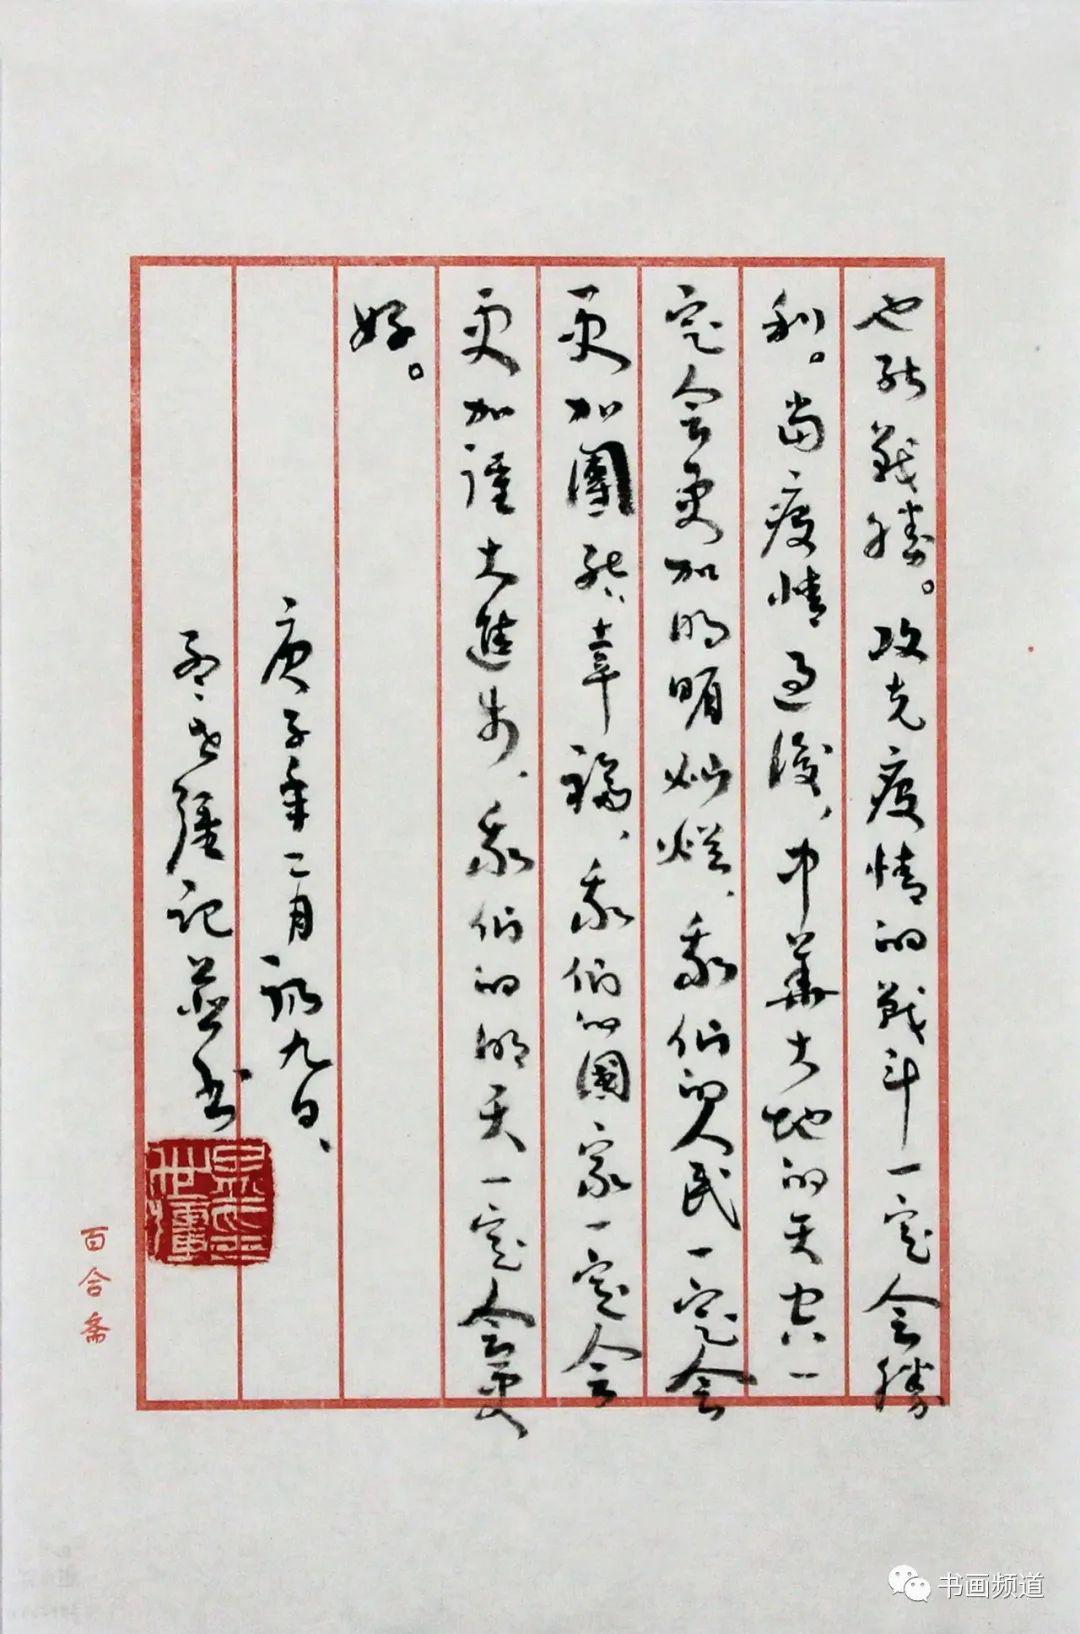 也能戰勝。攻克疫情的戰斗一定会勝
利。当疫情過後、中華大地的天空一
定会更加明媚灿烂、我们的人民一定会
更加團结幸福、我们的國家一定会
更加强大進步、我们的明天一定会更
好。
庚子年二月初九日、
记並书
百合斋
书画频道